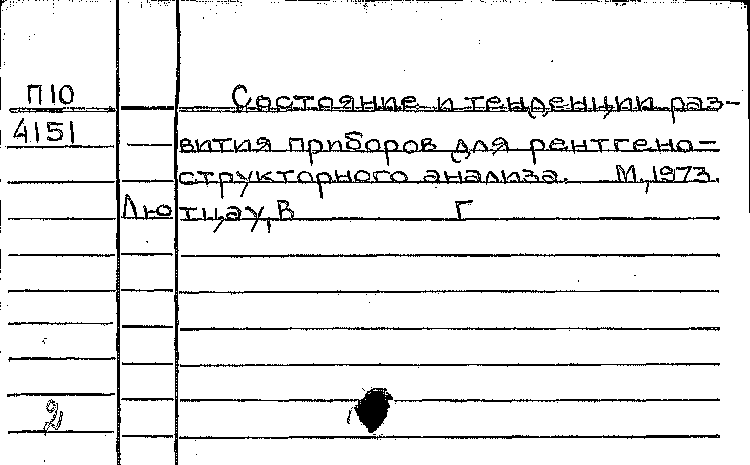 П10 Состояние и тенденции раз-
4151 вития приборов для рентгено-
структорного анализа. М.,1973.
Лютцау, В Г
2